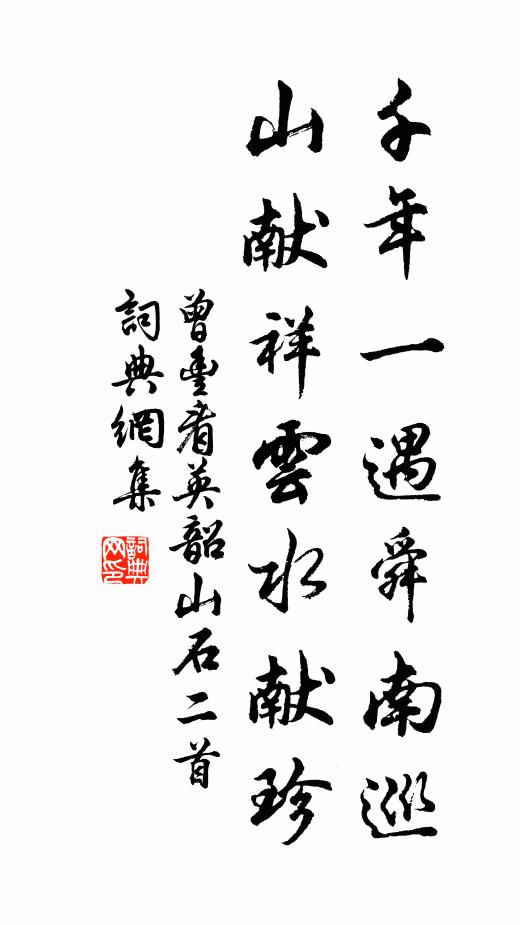 千年一遇舜南巡
山献祥雲水献珍
曾豐看英韶山石二首
詞典網集
詞典網印